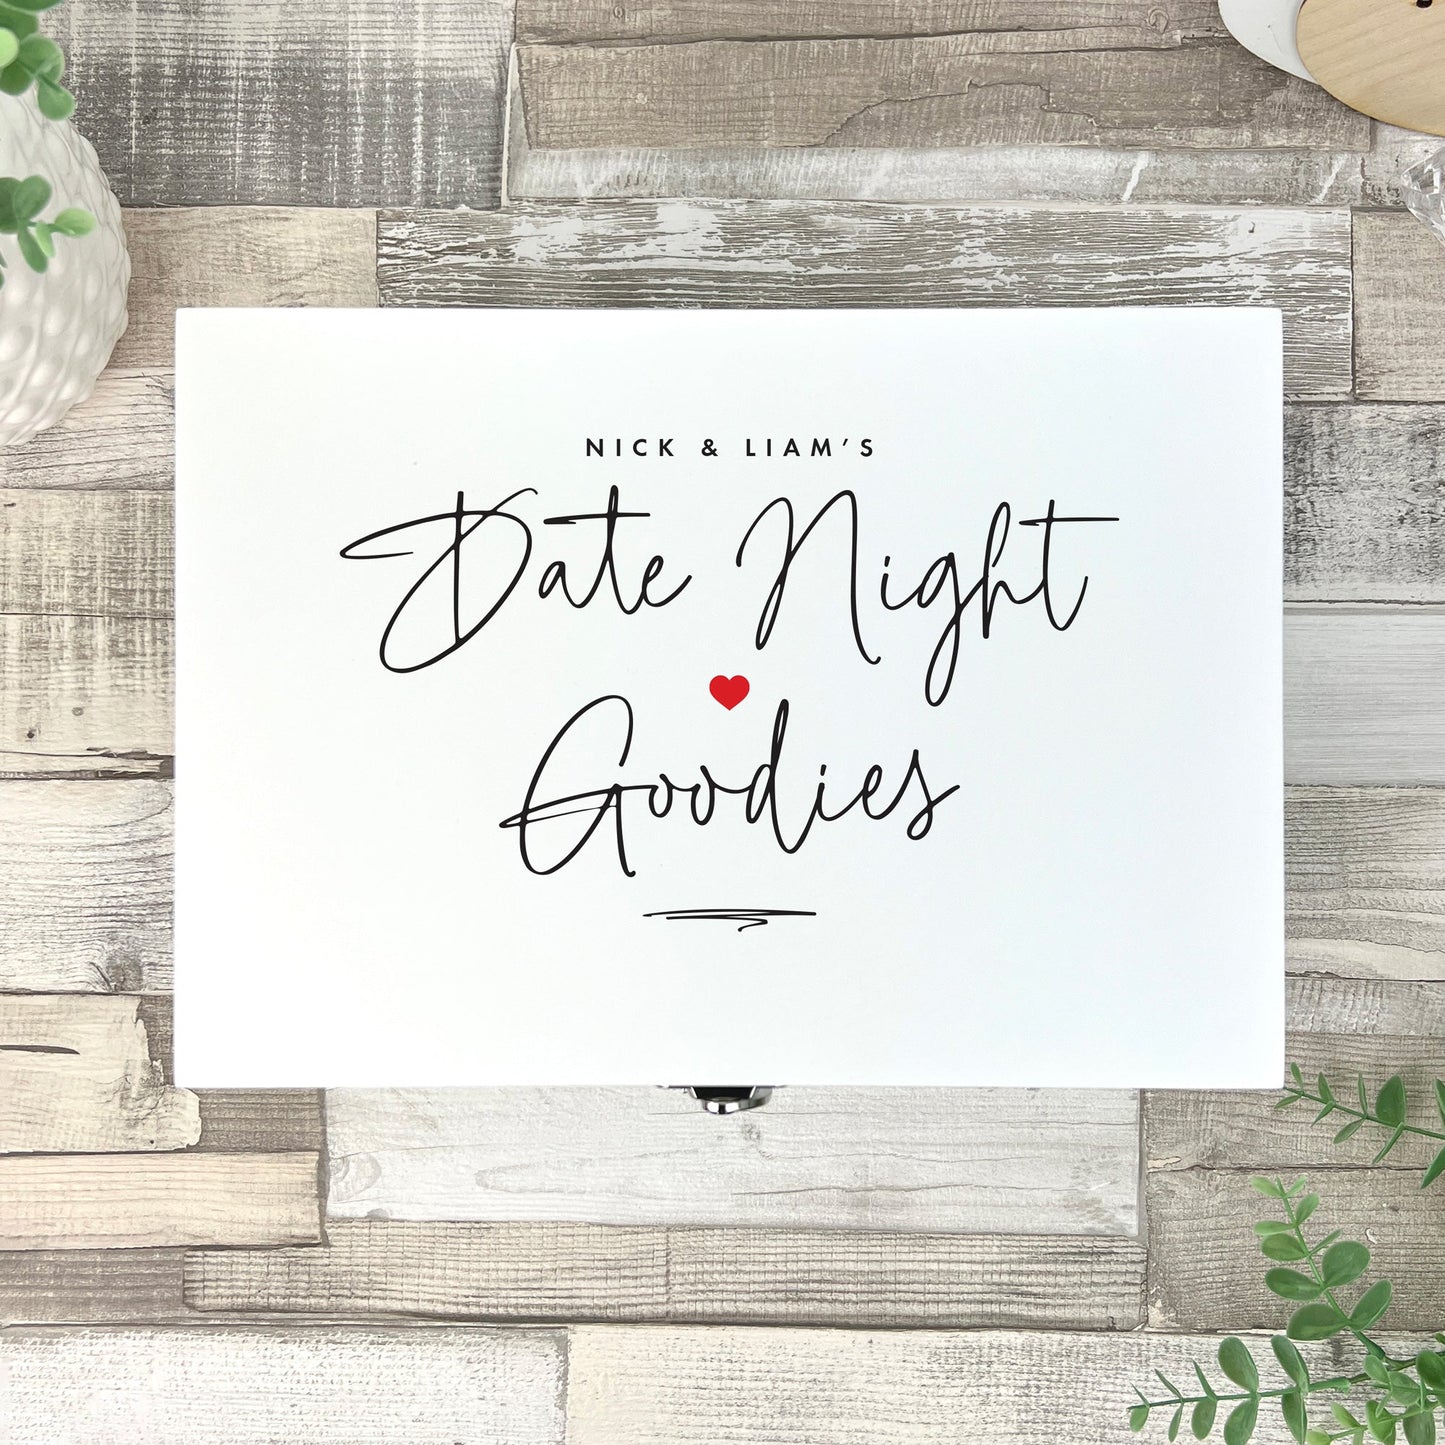 NICK & LIAM’S
Date Night
Goodies